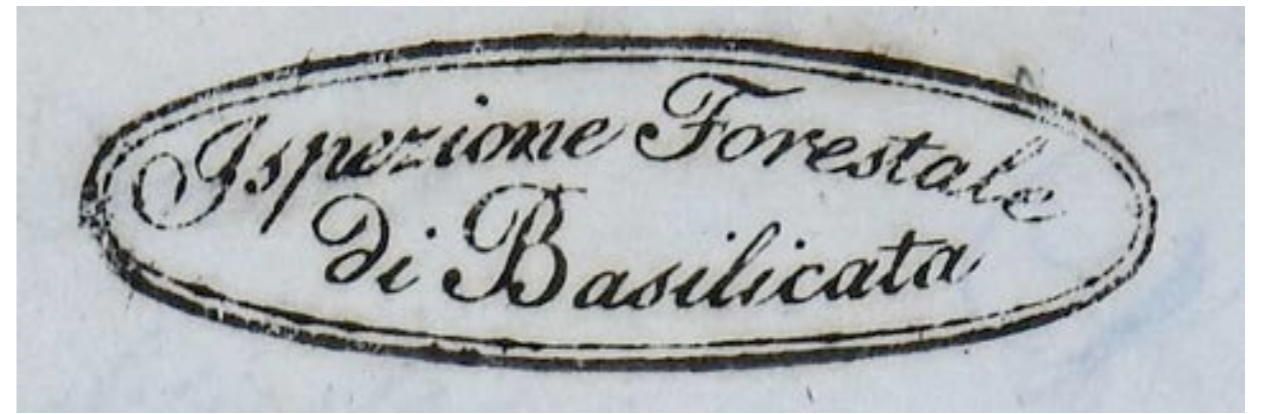 Ispezione Forestale
Di Basilicata